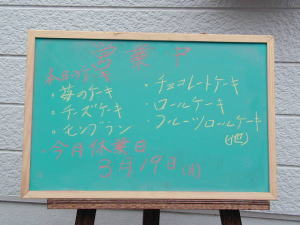 営業中
本日のケーキ
・苺のケーキ
・チーズケーキ
・モンブラン
・チョコレートケーキ
・ロールケーキ
・フルーツロールケーキ
(他)
今月休業日
3月19日(月)